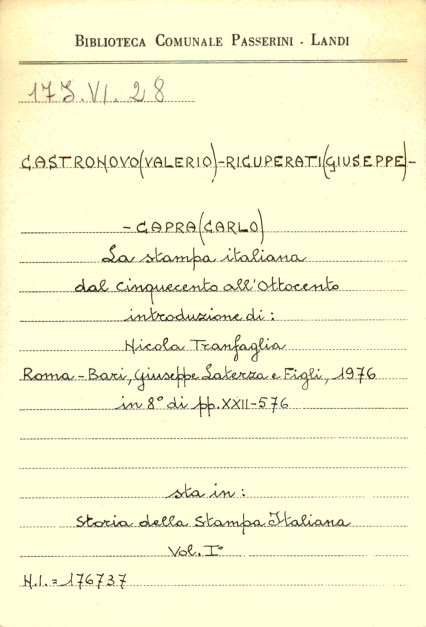 BIBLIOTECA COMUNALE PASSERINI - LANDI
173.VI.28
CASTRONOVO(VALERIO)-RICUPERATI(GIUSEPPE)-
-CAPRA(CARLO)
La stampa italiana
dal Cinquecento all'Ottocento
introduzione di:
Nicola Tranfaglia
Roma-Bari, Giuseppe Laterza e Figli, 1976
in 8° di pp. XXII-576
sta in:
Storia della Stampa Italiana
Vol. I°
N.I. = 176737